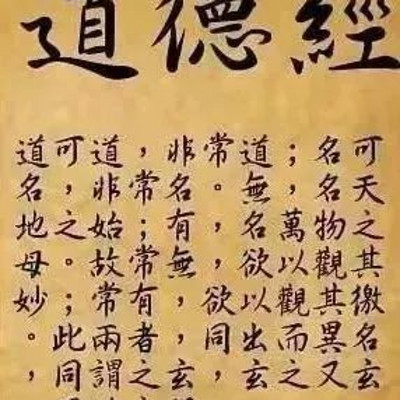 道德經
道可道，非常道；名可
名，非常名。無，名天
地之始；有，名萬物之
母。故常無，欲以觀其
妙；常有，欲以觀其徼
。此兩者，同出而異名
，同謂之玄，玄之又玄